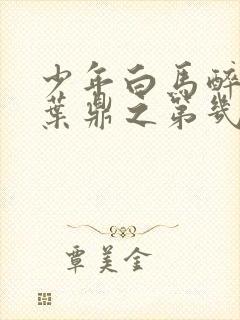 少年白马醉
葉鼎之第幾
覃美金